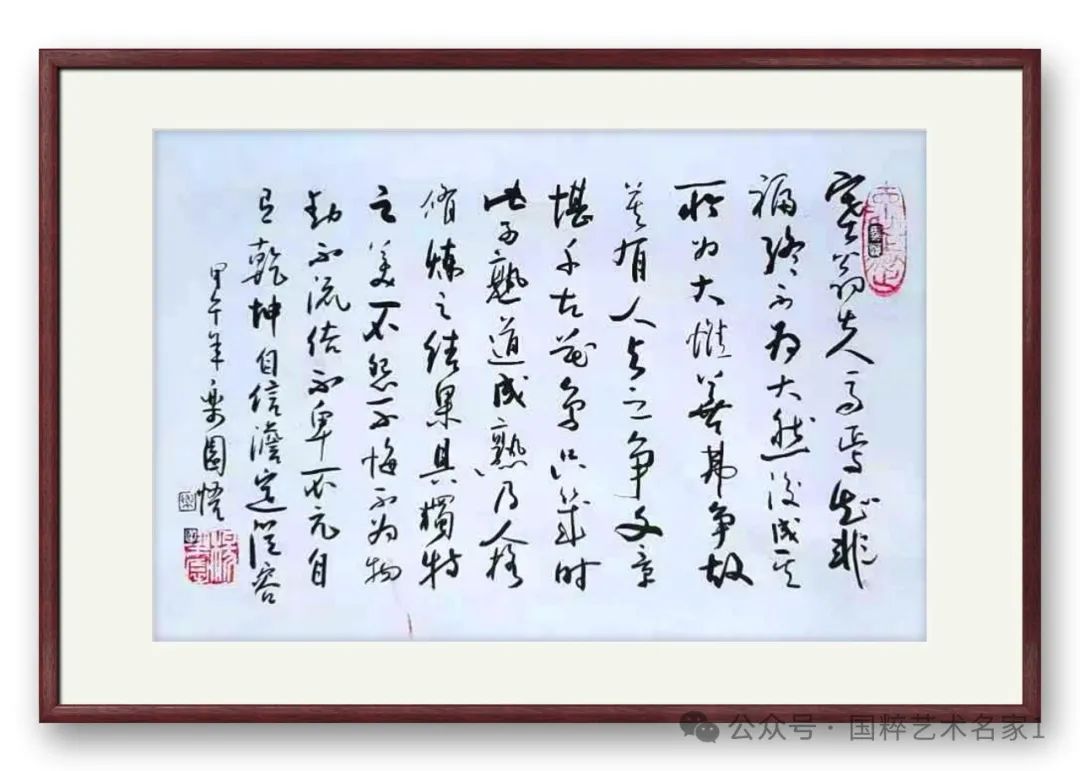 塞翁失人马焉知非
福终不为大然后成其
所为大惟善弗争故
莫有人与之争文章
堪千古花草只几时
此子熟道成熟乃人格
修炼之结果具独特
之美不怨不悔不为物
动不流俗不卑不亢自
有乾坤自信澹定从容
甲午年 乐园悟
公众号 · 国粹艺术名家1